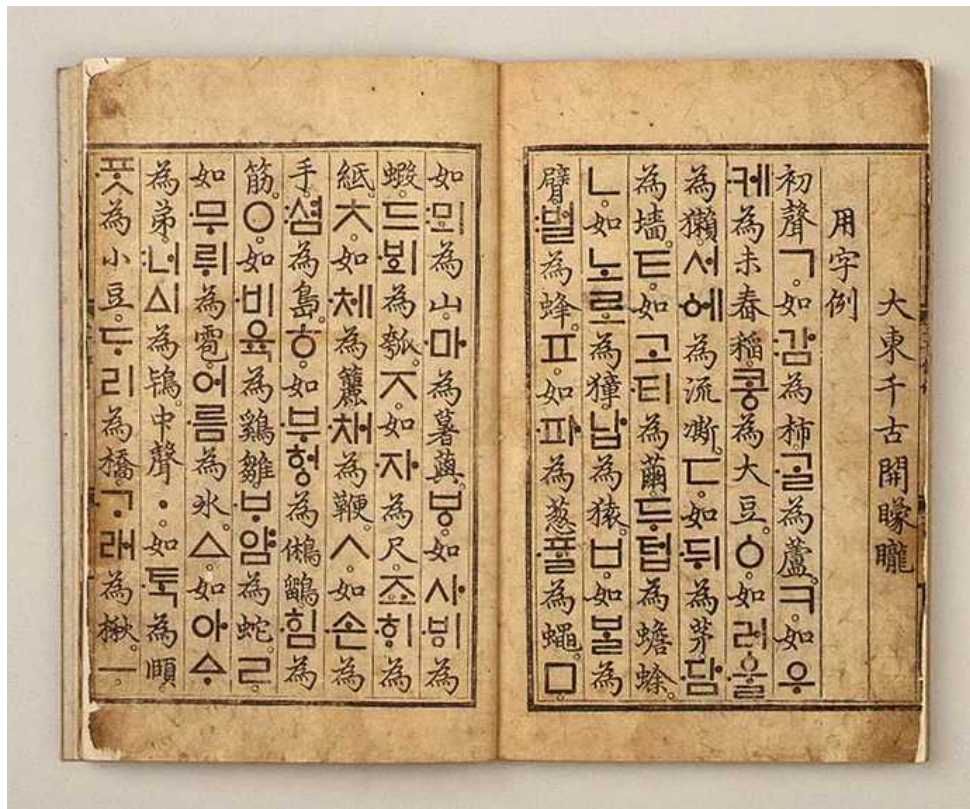 大東千古開矇矓
用字例
初聲ㄱ。如:감為柿。ᄀᆞᆯ為蘆。ㅋ。如우
케為未舂稻。콩為大豆。ㆁ。如러ᅌᅮᆯ
為獺。서ᅌᅦ為流凘。ㄷ。如뒤為茅。담
為墻。ㅌ。如고티為繭。두텁為蟾蜍。
ㄴ。如노로為獐。납為猿。ㅂ。如ᄇᆞᆯ為
臂。:벌為蜂。ㅍ。如파為葱。ᄑᆞᆯ為蠅。ㅁ
如:뫼為山。마為薯藇。ㅸ。如사ᄫᅵ為
蝦。드ᄫᅴ為瓠。ㅈ。如자為尺。죠ᄒᆡ為
紙。ㅊ。如체為籭。채為鞭。ㅅ。如손為
手。:셤為島。ㅎ。如부허ᇰ為鵂鶹。힘為
筋。ㅇ。如비육為鷄雛。ᄇᆞ얌為蛇。ㄹ
如무뤼為雹。어름為氷。ㅿ。如아ᅀᆞ
為弟。:너ᅀᅵ為鴇。中聲ㆍ。如ᄐᆞᆨ為頤
ᄑᆞᆺ為小豆。ᄃᆞ리為橋。ᄀᆞ래為楸。ㅡ